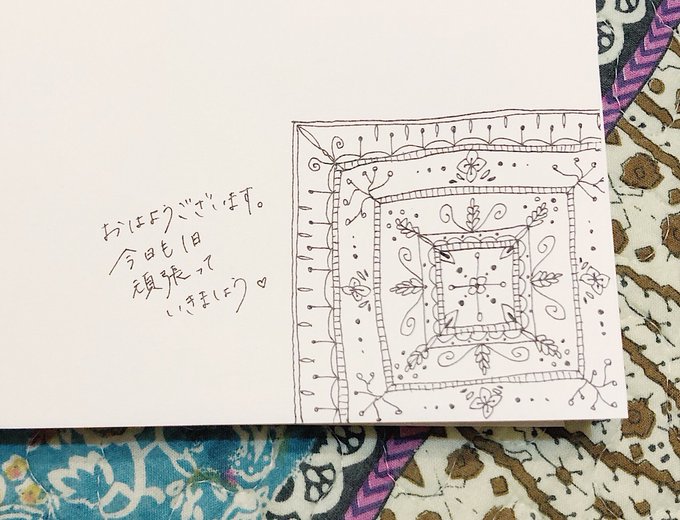 おはようございます。
今日も1日
頑張って
いきましょう♡